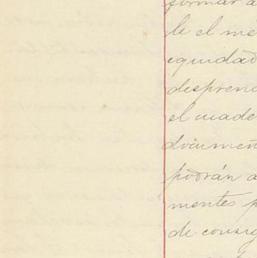 formar a
le el me
equidad
despren
el cuade
documen
podrán a
mentes p
de consig